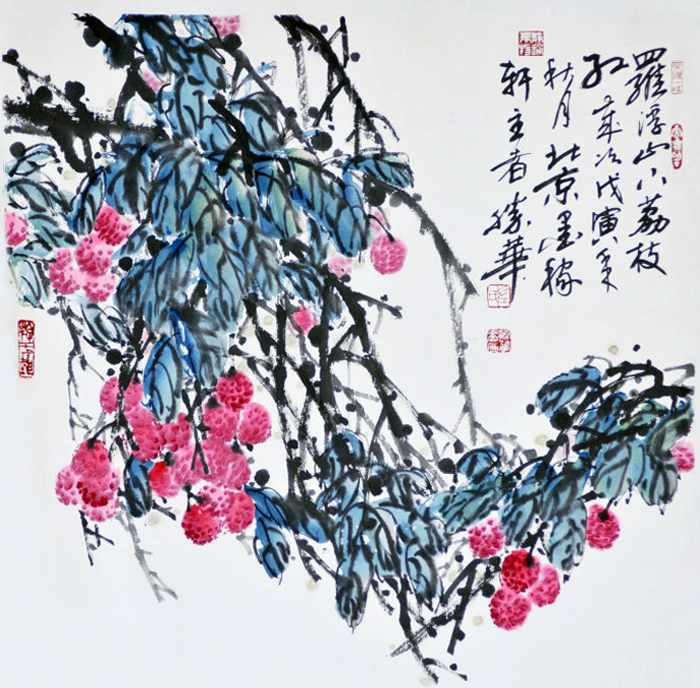 羅浮山下荔枝
红歲次戊寅
秋月北京墨稼
轩主者勝華